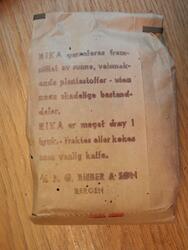 NIKA garanteres frem-
stillet av sunne, velsmak-
ende plantestoffer - uten
noen skadelige bestand-
deler.
NIKA er meget drøy i
bruk. - Traktes eller kokes
som vanlig kaffe.
A/S J. G. BIEBER & SØN
BERGEN